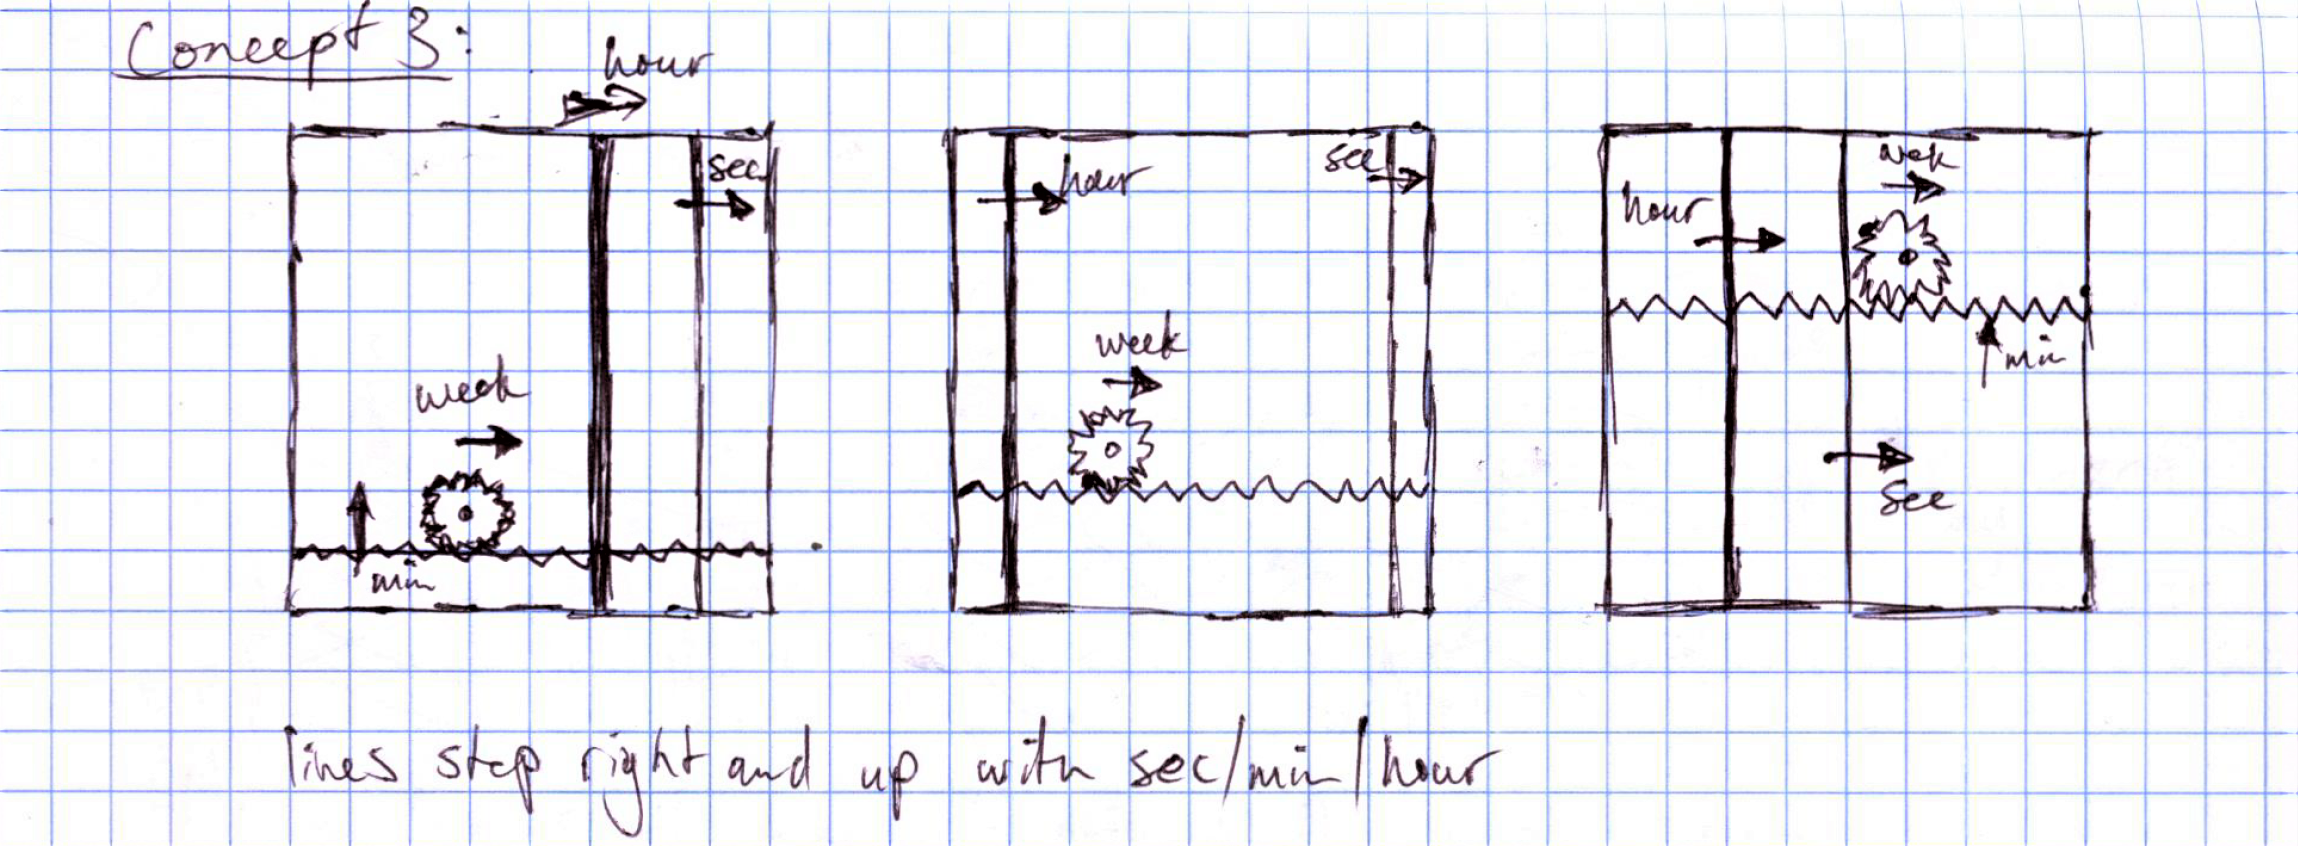 Concept 3:
hour
sec
week
min
hour
sec
week
hour
wek
min
sec
lines step right and up with sec/min/hour